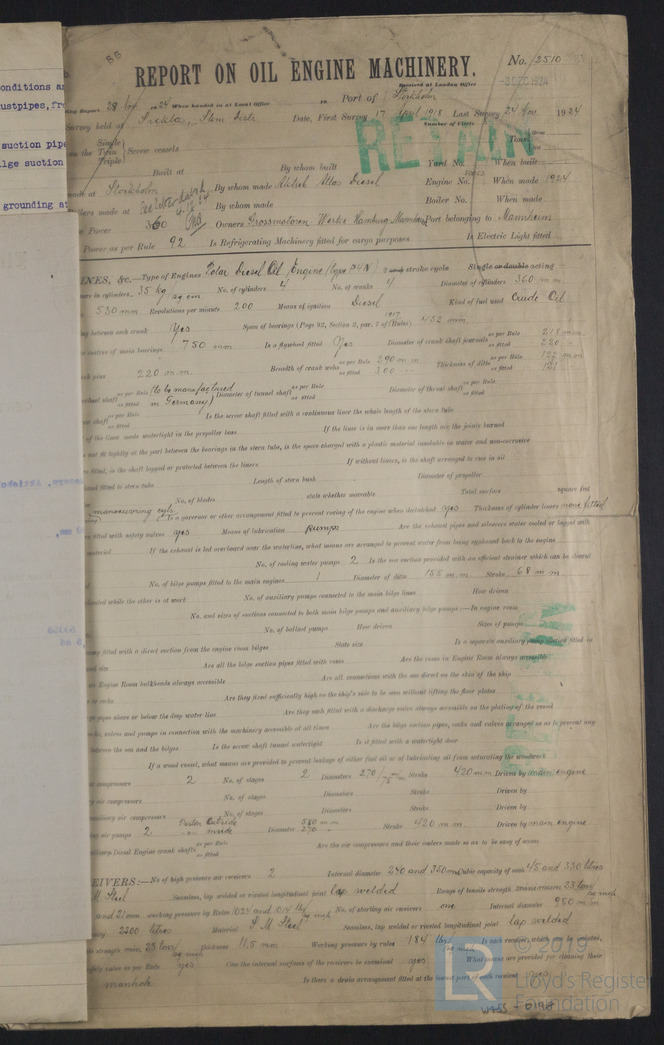 onditions a
ustpipes, fr
suction pipe
lge suction
grounding at
86
REPORT ON OIL ENGINE MACHINERY.
No. 2510
Received at London Office
-3 DEC 1924
Report 28 Nov 1924 When handed in at Local Office Port of Stockholm
Survey held at Sickla, Date, First Survey 17 1918 Last Survey 24 Nov. 1924
Number of Visits
RETAIN
on the Single Twin Triple Screw vessels Tons
Built at By whom built Yard No. When built
made at Stockholm By whom made Aktieb Atlas Diesel Engine No. When made 1924
made at By whom made Boiler No. When made
Power 360 Owners Grossmotoren Werke Mannheim Port belonging to Mannheim
Power as per Rule 92 Is Refrigerating Machinery fitted for cargo purposes Is Electric Light fitted
INES, &c.—Type of Engines Polar Diesel Oil Engine (type D4N) 2 stroke cycle Single or double acting
in cylinders 35 kg sq cm No. of cylinders 4 No. of cranks 4 Diameter of cylinders 360 mm
530 mm Revolutions per minute 200 Means of ignition Diesel Kind of fuel used Crude Oil
between each crank Yes Span of bearings (Page 92, Section 2, par. 7 of Rules) 1917 452 mm
centres of main bearings 750 mm Is a flywheel fitted Yes Diameter of crank shaft journals as per Rule 218 mm as fitted 220
pins 220 mm Breadth of crank webs as per Rule 290 mm as fitted 300 Thickness of ditto as per Rule 122 mm
shaft as per Rule as fitted (to be manufactured in Germany) Diameter of tunnel shaft as per Rule as fitted Diameter of thrust shaft as per Rule as fitted
shaft as per Rule as fitted Is the screw shaft fitted with a continuous liner the whole length of the stern tube
of the liner made watertight in the propeller boss If the liner is in more than one length are the joints burned
not fit tightly at the part between the bearings in the stern tube, is the space charged with a plastic material insoluble in water and non-corrosive
fitted, is the shaft lapped or protected between the liners If without liners, is the shaft arranged to run in oil
fitted to stern tube Length of stern bush Diameter of propeller
No. of blades state whether moveable Total surface square feet
manoeuvering Is a governor or other arrangement fitted to prevent racing of the engine when declutched yes Thickness of cylinder liners none fitted
fitted with safety valves yes Means of lubrication pumps Are the exhaust pipes and silencers water cooled or lagged with
material If the exhaust is led overboard near the waterline, what means are arranged to prevent water from being syphoned back to the engine
No. of cooling water pumps 2 Is the sea suction provided with an efficient strainer which can be cleared
No. of bilge pumps fitted to the main engines 1 Diameter of ditto 155 mm Stroke 68 mm
while the other is at work No. of auxiliary pumps connected to the main bilge lines How driven
No. and sizes of suctions connected to both main bilge pumps and auxiliary bilge pumps:—In engine room
No. of ballast pumps How driven Sizes of pumps
fitted with a direct suction from the engine room bilges State size Is a separate auxiliary pump suction fitted in
and size Are all the bilge suction pipes fitted with roses Are the roses in Engine Room always accessible
Engine Room bulkheads always accessible Are all connections with the sea direct on the skin of the ship
or cocks Are they fixed sufficiently high on the ship's side to be seen without lifting the floor plates
pipes above or below the deep water line Are they each fitted with a discharge valve always accessible on the plating of the vessel
valves and pumps in connection with the machinery accessible at all times Are the bilge suction pipes, cocks and valves arranged so as to prevent any
between the sea and the bilges Is the screw shaft tunnel watertight Is it fitted with a watertight door
If a wood vessel, what means are provided to prevent leakage of either fuel oil or of lubricating oil from saturating the woodwork
air compressors 2 No. of stages 2 Diameters 270/75 mm Stroke 420 mm Driven by main engine
air compressors No. of stages Diameters Stroke Driven by
auxiliary air compressors No. of stages Diameters Stroke Driven by
air pumps 2 Piston outside inside Diameter 580 mm 270 Stroke 420 mm Driven by main engine
auxiliary Diesel Engine crank shafts as per Rule as fitted Are the air compressors and their coolers made so as to be easy of access
EIVERS:—No. of high pressure air receivers 2 Internal diameter 240 and 350 mm Cubic capacity of each 45 and 330 litres
M Steel Seamless, lap welded or riveted longitudinal joint lap welded Range of tensile strength 23 tons sq inch
and 21 mm working pressure by Rules 1024 and 1014 lbs sq inch No. of starting air receivers one Internal diameter 950 mm
2200 litres Material S M Steel Seamless, lap welded or riveted longitudinal joint lap welded
strength min 23 tons sq inch thickness 11,5 mm Working pressure by rules 184 lbs sq inch Is each receiver, which can be isolated,
safety valve as per Rule yes Can the internal surfaces of the receivers be examined yes What means are provided for cleaning their
manhole Is there a drain arrangement fitted at the lowest part of each receiver
© 2019
LR Lloyd's Register Foundation
W755-0198